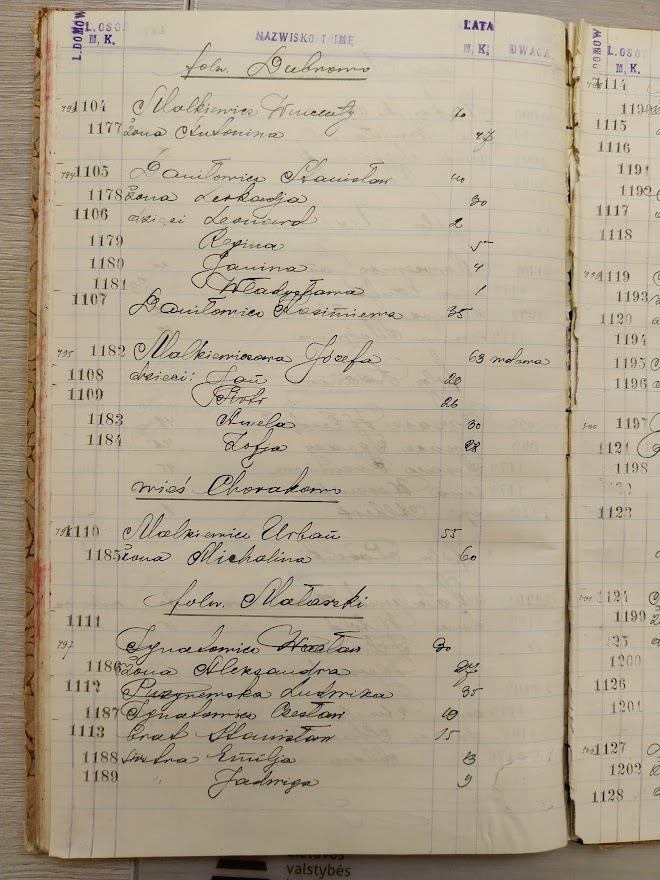 L. DOMÓW L. OSÓB M. K. NAZWISKO I IMĘ LATA M. K. UWAGA
folw. Dubnowo
493 1104 Malkiewicz Wincenty 70
1177 żona Antonina 47
494 1105 Daniłowicz Stanisław 40
1178 żona Leokadja 30
1106 dzieci Leonard 2
1179 Regina 5
1180 Janina 4
1181 Władysława 1
1107 Daniłowicz Kazimierz 35
495 1182 Malkiewiczowa Józefa 63 wdowa
1108 dzieci: Jan 20
1109 Piotr 26
1183 Amela 30
1184 Zofja 28
wieś Chorakowo
1110 Malkiewicz Urban 55
1185 żona Michalina 60
folw. Mataszki
1111
497 Ignatowicz Wacław 30
1186 żona Aleksandra 27
1112 Ludwika 35
1187 Ignatowicz Czesław
1113 brat Stanisław 15
1188 siostra Emilja 13
1189 Jadwiga 9
DOMÓW L. OSÓB M. K.
1114
1190
1115
1116
1191
1192
1117
1118
1119
1193
1120
1194
1195
1196
500 1197
1121
1198
1123
501 1124
1199
1200
1126
1201
1127
1202
1128
Lietuvos
valstybės